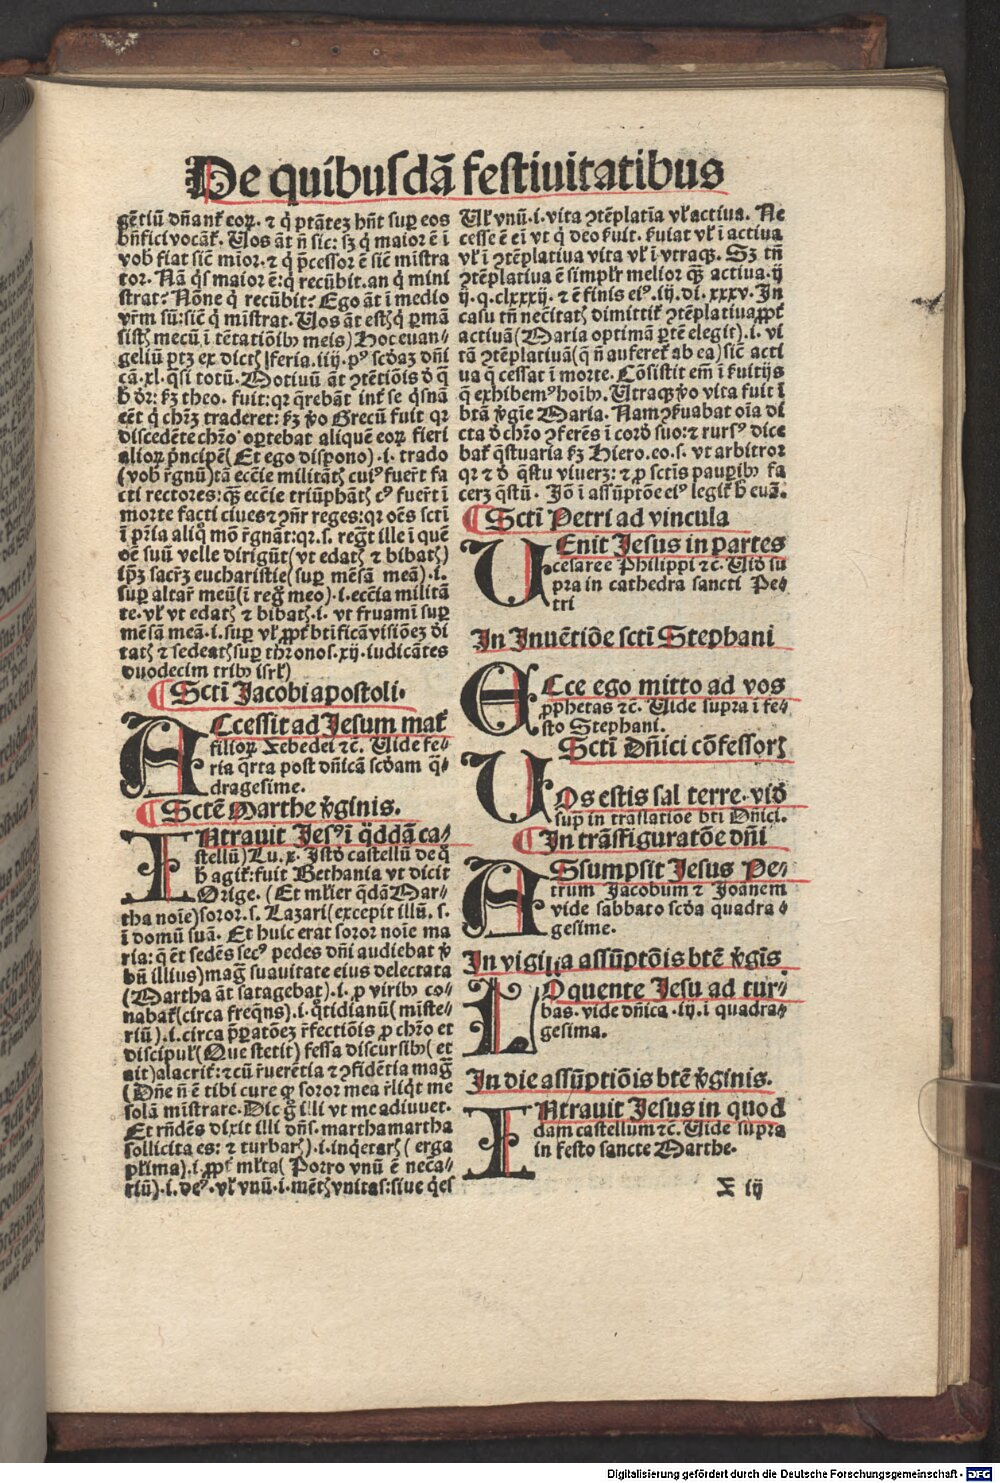 De quibusdā festiuitatibus
gētiū dn̄ant᷑ eoꝝ. ⁊ q̇ ptātez hn̄t suꝑ eos
bn̄fici vocāt᷑. Uos āt n̄ sic: sꝫ q̇ maior ē ī
vob̾ fiat sic̄ mīor. ⁊ q̇ p̄cessor ē sic̄ mīstra
tor. Nā q̇s maior ē: q̇ recūbit. an q̇ mini
strat? Nōne q̇ recūbit? Ego āt ī medio
vr̄m sū: sic̄ q̇ mīstrat. Uos āt
mecū ī tētatiōibꝰ meis) Hoc euan⸗
geliū ptꝫ
cā. xl. q̄si totū. Motiuū āt ↄtētiōis
fuit: qr q̄rebāt int᷑ se q̇snā
eēt q̇ chr̄ꝫ traderet: Grecū fuit qr
discedēte chr̄o oꝑtebat aliquē eoꝝ fieri
alioꝝ prı̄ncipē (Et ego dispono) .i. trado
(vob̾ r̄gnū) tā ecc̄ie militātꝫ cuiꝰ fuer̄t fa
cti rectores: ecc̄ie triūphātꝫ cꝰ fuer̄t ī
morte facti ciues ⁊ ↄn̄r reges: qr oēs sctī
ī pr̄ia aliq̊ mō r̄gnāt: qr .s. reḡt ille ī quē
oē suū velle dirigūt (vt edatꝫ ⁊ bibatꝫ)
ip̄ꝫ sacr̄ꝫ eucharistie (suꝑ mēsā meā) .i.
suꝑ altar̄ meū (ī reg̊ meo) .i. ecc̄ia militā
te. vł vt edatꝫ ⁊ bibatꝫ .i. vt fruamī suꝑ
mēsā meā .i. suꝑ
tatꝫ ⁊ sedeatꝫ suꝑ thronos .xij. iudicātes
duodecim tribꝰ isrł)
¶ Sctī Jacobi apostoli.
ACcessit ad Jesum mat᷑
filioꝝ Zebedei ⁊c̄. Uide fe⸗
ria q̄rta post dn̄icā scd̄am q̄⸗
dragesime.
¶ Sctē Marthe v̄ginis.
INtrauit Jesꝰ ī q̊ddā ca⸗
stellū) Lu. x. Istd̄ castellū de q̊
h̄ agit᷑: fuit Bethania vt dicit
Orige. (Et mł̄ier q̄dā Mar⸗
tha noīe) soror .s. Lazari (excepit illū .s.
ī domū suā. Et huic erat soror noīe ma
ria: q̄ ēt sedēs secꝰ pedes dn̄i audiebat v̄
bū illius) maḡ suauitate eius delectata
(Martha āt satagebat) .i. ꝓ viribꝰ co⸗
nabat᷑ (circa freq̄ns) .i. q̊tidianū (mīste⸗
riū) .i. circa p̄ꝑatōeꝫ r̄fectiōis ꝓ chr̄o et
discipuł (Que stetit) fessa discursibꝰ (et
ait) alacrit᷑: ⁊ cū r̄uerētia ⁊ ↄfidētia maḡ
(Dn̄e n̄ ē tibi cure ꝙ soror mea r̄liq̇t me
solā mīstrare. Dic g̊ illi vt me adiuuet.
Et rn̄dēs dixit illi dn̄s. martha martha
sollicita es: ⁊ turbarꝫ) .i. inq̇etarꝫ (erga
plīma) .i. ꝓpt᷑ młta (Porro vnū ē necā⸗
riū) .i. deꝰ. vł vnū .i. mētꝫ vnitas: siue q̇es
Uł vnū .i. vita ↄtēplatīa vł actiua. Ne
cesse ē eī vt q̇ deo ſuit. ſuiat vł ī actiua
vł ī ↄtēplatiua vita vł ī vtraqꝫ. Sꝫ tn̄
ↄtēplatiua ē simplr̄ melior qꝫ actiua. ij
ij. q. clxxxij. ⁊ ē finis eiꝰ. iij. di. xxxv. In
casu tn̄ nec̄itatꝫ dimittit᷑ ↄtēplatiua ꝓpt᷑
actiuā (Maria optimā ꝑtē elegit) .i. vi
tā ↄtēplatiuā (q̄ n̄ auferet᷑ ab ea) sic̄ acti
ua q̄ cessat ī morte. Cōsistit em̄ ī ſuitijs
q̄ exhibem᷒ hoībꝰ. Utraqꝫ v̊o vita fuit ī
btā v̄gīe Maria. Nam ↄſuabat oīa di
cta d̾ chr̄o ↄferēs ī cord̾ suo: ⁊ rursꝰ dice
bat᷑ q̄stuaria ſꝫ Hiero. eo .s. vt arbitror
qr ⁊ d̾ q̄stu viuerꝫ: ⁊ ꝓ sctīs pauꝑibꝰ fa
cerꝫ q̄stū. Jō ī assūptōe eiꝰ legit᷑ h̾ euā.
¶ Sctī Petri ad vincula
UEnit Jesus in partes
cesaree Philippi ⁊c̄. Uid̾ su
pra in cathedra sancti Pe⸗
tri
In Inuētiōe sctī Stephani
ECce ego mitto ad vos
ꝓphetas ⁊c̄. Uide supra ī fe⸗
sto Stephani.
Sctī Dn̄ici cōfessorꝫ
UOs estis sal terre. vid̾
sup in traslatioe bti Dn̄ici.
¶ In trāsfiguratōe dn̄i
ASsumpsit Jesus Pe⸗
trum Jacobum ⁊ Joānem
vide sabbato scd̄a quadra⸗
gesime.
In vigilia assūptōis btē v̄gīs
LOquente Jesu ad tur⸗
bas. vide dn̄ica .iij. ī quadra⸗
gesima.
In die assūptiōis btē v̄ginis.
INtrauit Jesus in quod
dam castellum ⁊c̄. Uide supra
in festo sancte Marthe.
X iij
Digitalisierung gefördert durch die Deutsche Forschungsgemeinschaft - DFG